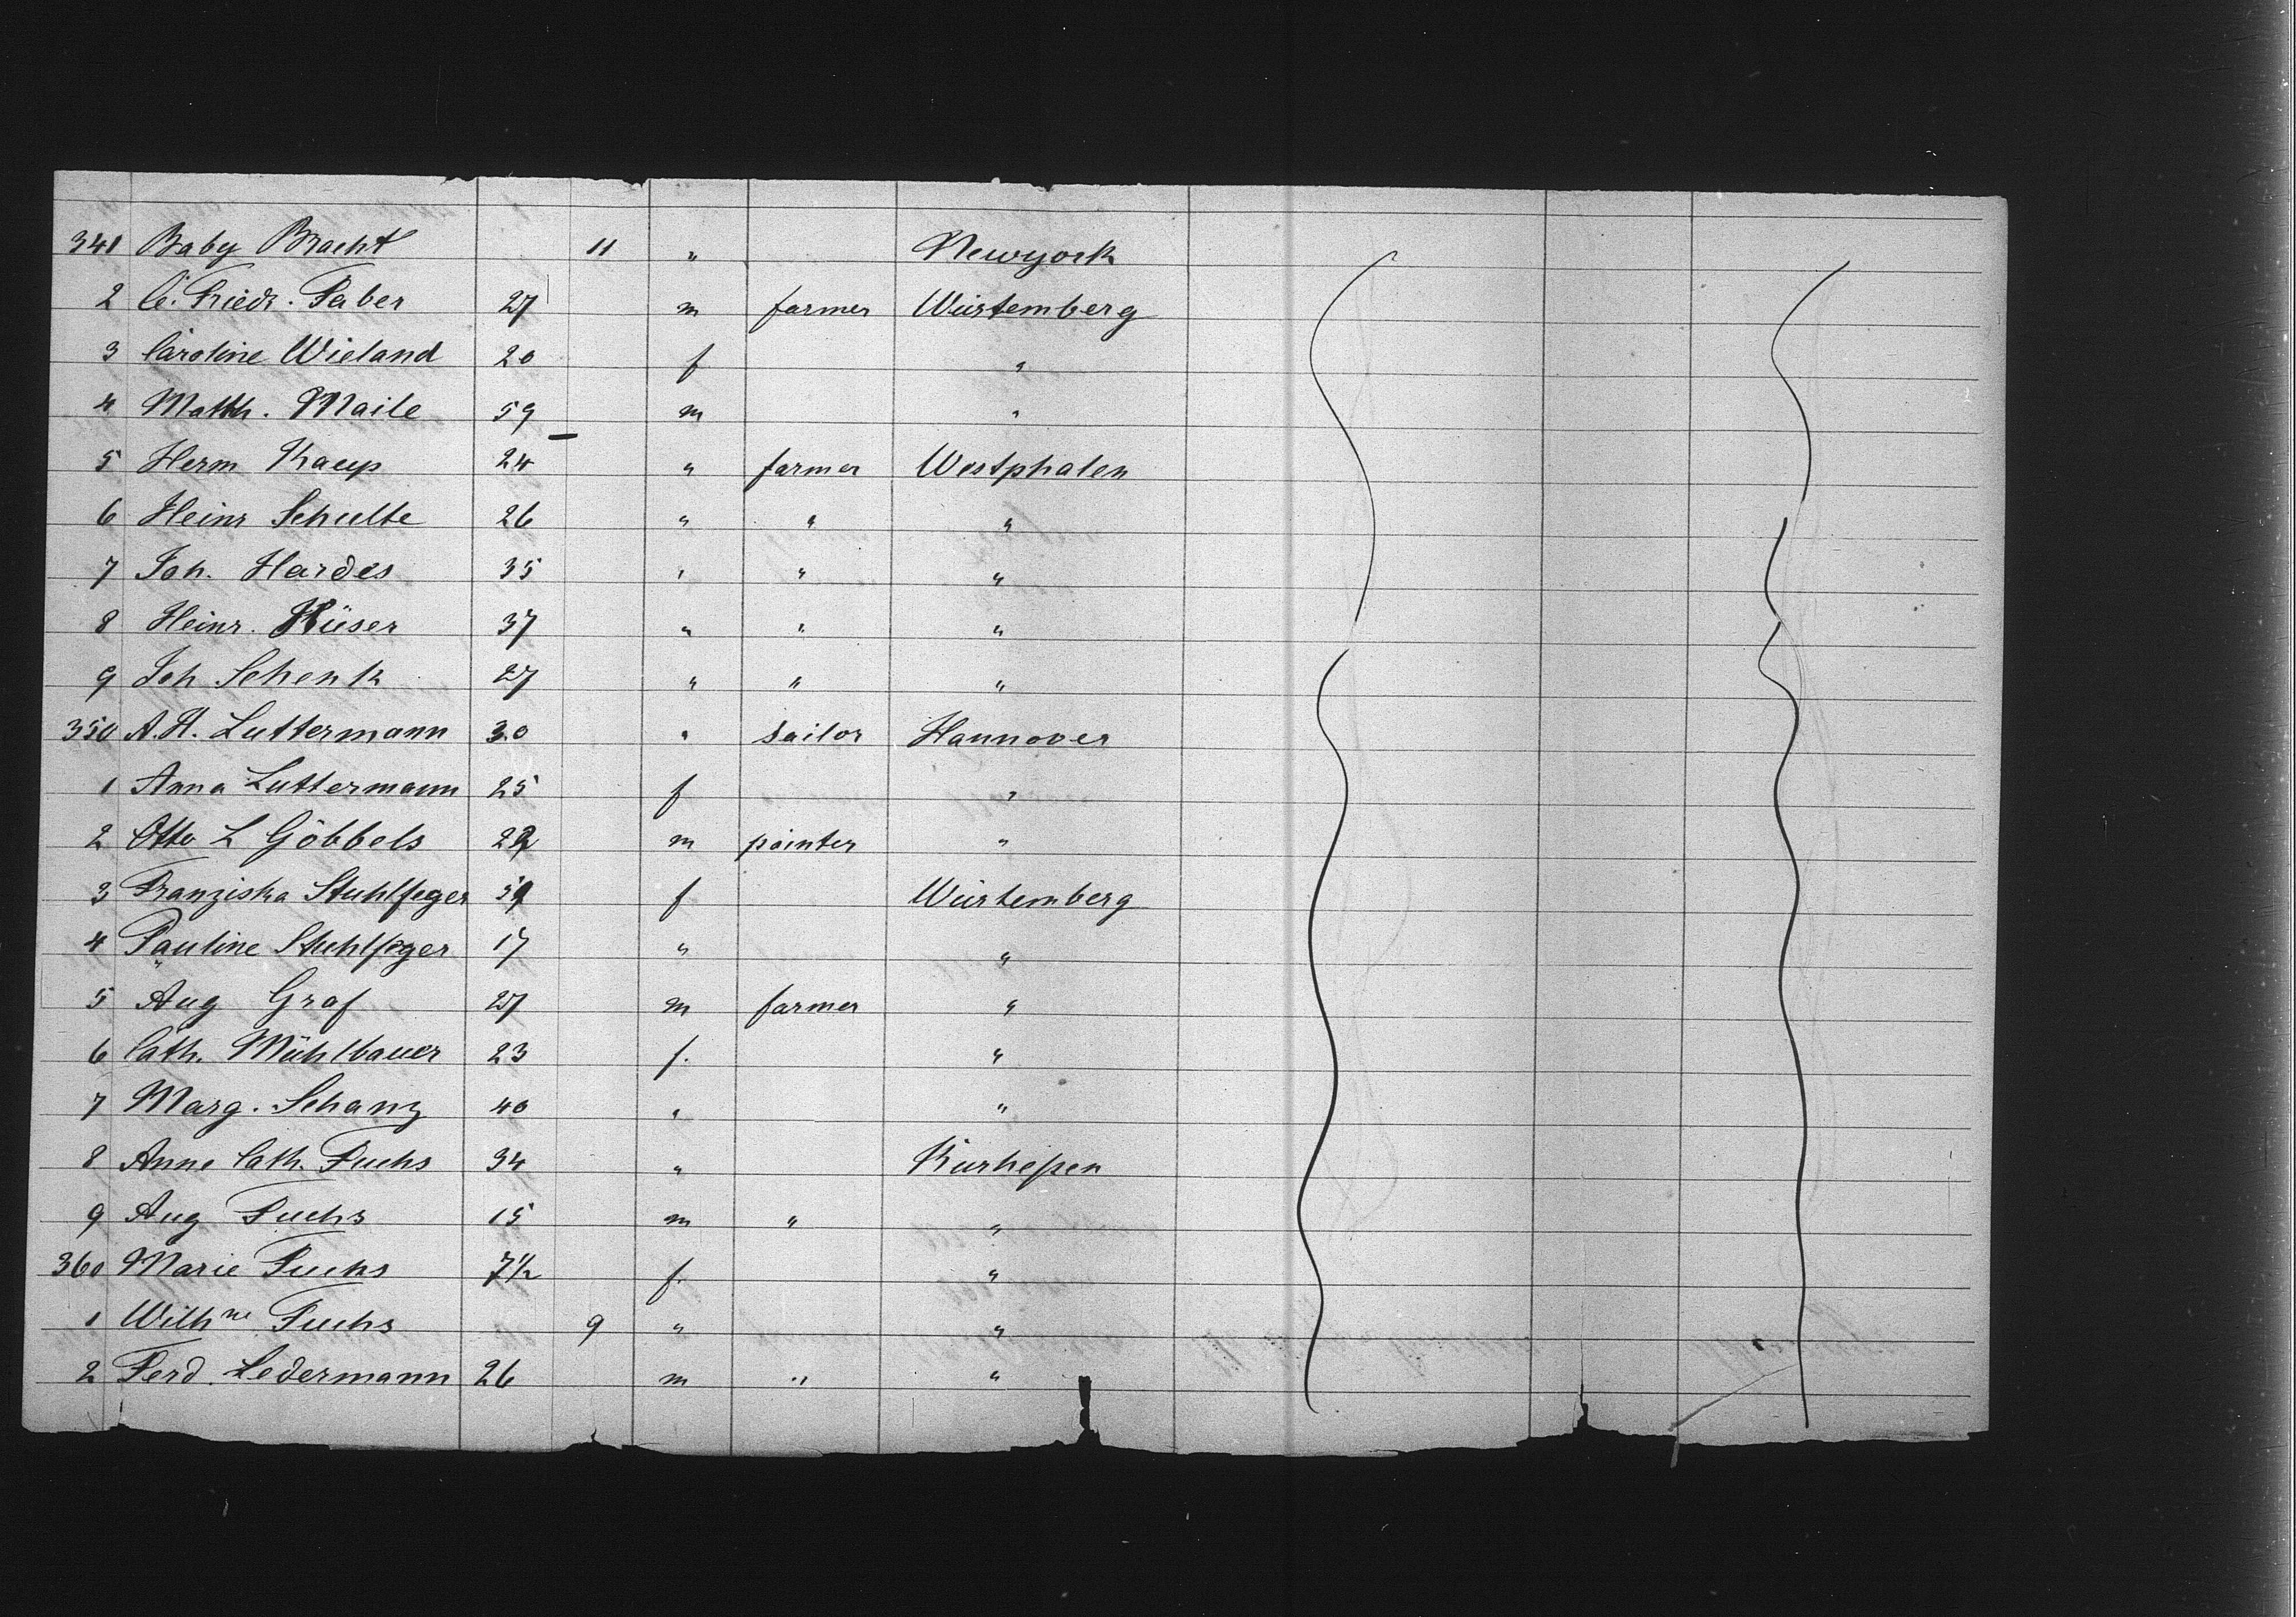 341 Baby Bracht 11 " Newyork
2 C. Friedr. Faber 27 m farmer Würtemberg
3 Caroline Wieland 20 f "
4 Matth. Maile 59 m "
5 Herm Kaup 24 " farmer Westphalen
6 Heinr Schulte 26 " " "
7 Joh. Hardes 35 " " "
8 Heinr. Hüser 37 " " "
9 Joh Schenk 27 " " "
350 A. H. Luttermann 30 " sailor Hannover
1 Anna Luttermann 25 f "
2 Otto L Göbbels 22 m painter "
3 Franziska Stuhlfeger f Würtemberg
4 Pauline Stuhlfeger 17 " "
5 Aug Graf 27 m farmer "
6 Cath. Mühlbauer 23 f. "
7 Marg. Schanz 40 " "
8 Anne Cath. Fuchs 34 " Kurhessen
9 Aug Fuchs 15 m " "
360 Marie Fuchs 7½ f. "
1 Wilhne Fuchs 9 " "
2 Ferd. Ledermann 26 m " "